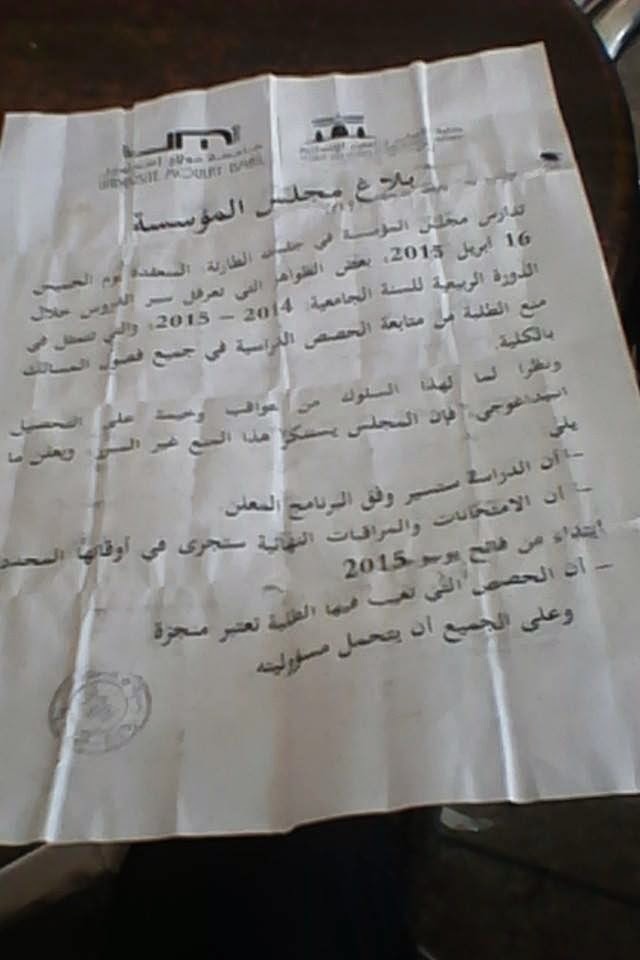 جامعة مولاي اسماعيل
UNIVERSITE MOULAY ISMAIL
بلاغ مجلس المؤسسة
تدارس مجلس المؤسسة في جلسته الطارئة، المنعقدة يوم الخميس
16 ابريل 2015، بعض الظواهر التي تعرقل سير الدروس خلال
الدورة الربيعية للسنة الجامعية: 2014 – 2015، والتي تتمثل في
منع الطلبة من متابعة الحصص الدراسية في جميع فصول المسالك
بالكلية.
ونظرا لما لهذا السلوك من عواقب وخيمة على التحصيل
البيداغوجي، فإن المجلس يستنكر هذا المنع غير المبرر، ويعلن ما
يلي
– أن الدراسة ستسير وفق البرنامج المعلن
– أن الامتحانات والمراقبات النهائية ستجرى في أوقاتها المحددة
ابتداء من فاتح يونيو 2015
– أن الحصص التي تغيب فيها الطلبة تعتبر منجزة
وعلى الجميع أن يتحمل مسؤوليته